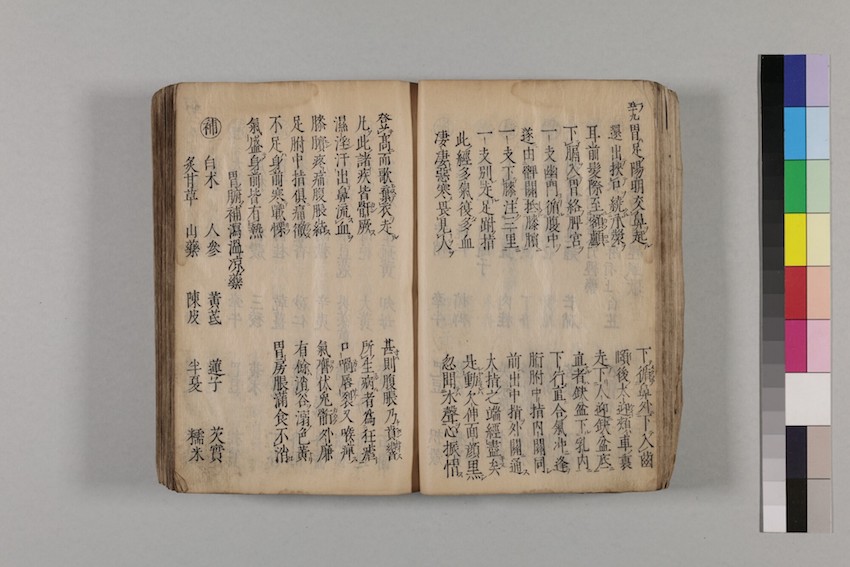 五十九 胃足陽明交鼻起 下循鼻外下入齒
還出挾口繞承漿 頤後大迎頰車裏
耳前髮際至額顱 走下人迎缺盆底
下膈入胃絡脾宮 直者缺盆下乳內
一支幽門循腹中 下行直合氣冲逢
遂由髀關抵膝臏 胻跗中指內關同
一支下膝注三里 前出中指外關通
一支別走足跗指 大指之端經盡矣
此經多氣復多血 是動欠伸面顏黑
凄凄惡寒畏見人 忽聞木聲心振惕
登高而歌棄衣走 甚則腹脹乃賁響
凡此諸疾皆骭厥 所生病者為狂瘧
濕淫汗出鼻流血 口喎唇裂又喉痺
膝臏疼痛腹脹結 氣膺伏兔骭外廉
足跗中指俱痛徹 有餘消谷溺色黃
不足身前寒振慄 胃房脹滿食不消
氣盛身前皆有熱
胃腑補瀉溫涼藥
補 白朮 人參 黃芪 蓮子 芡實
炙甘草 山藥 陳皮 半夏 糯米